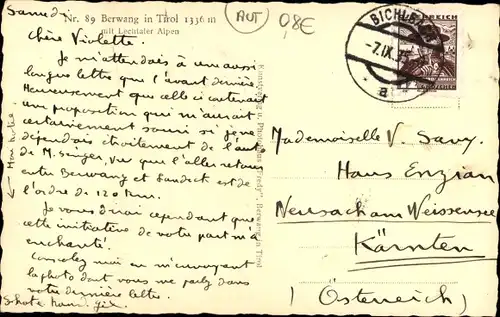 Samedi
Nr. 89 Berwang in Tirol 1336 m
mit Lechtaler Alpen
AUT
0,8€
BICHLBACH
-7.IX.35
a
Chère Violette.
Je m'attendais à une aussi
longue lettre que l'avant dernière
Heureusement que celle ci contenait
une proposition qui m'aurait
certainement souri si je ne
dépendais étroitement de l'auto
de M. Singer, vu que l'aller retour
entre Berwang et Landeck est de
l'ordre de 120 km.
Je vous dirai cependant que
cette initiative de votre part m'a
enchanté.
Consolez moi en m'envoyant
la photo dont vous me parlez dans
votre dernière lettre.
Mademoiselle V. Savy.
Haus Enzian
Neusach am Weissensee
Kärnten
(Österreich)